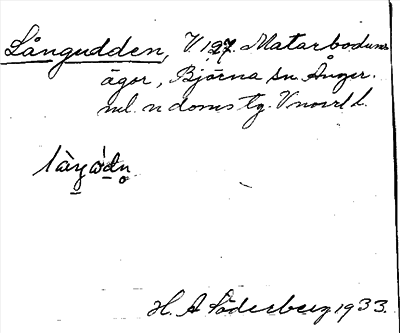 Långudden, V 127. Matarbodums
ägor, Björna sn. Ånger.
ml. n doms tg. Vnorrl l.
H. A Söderberg 1933.